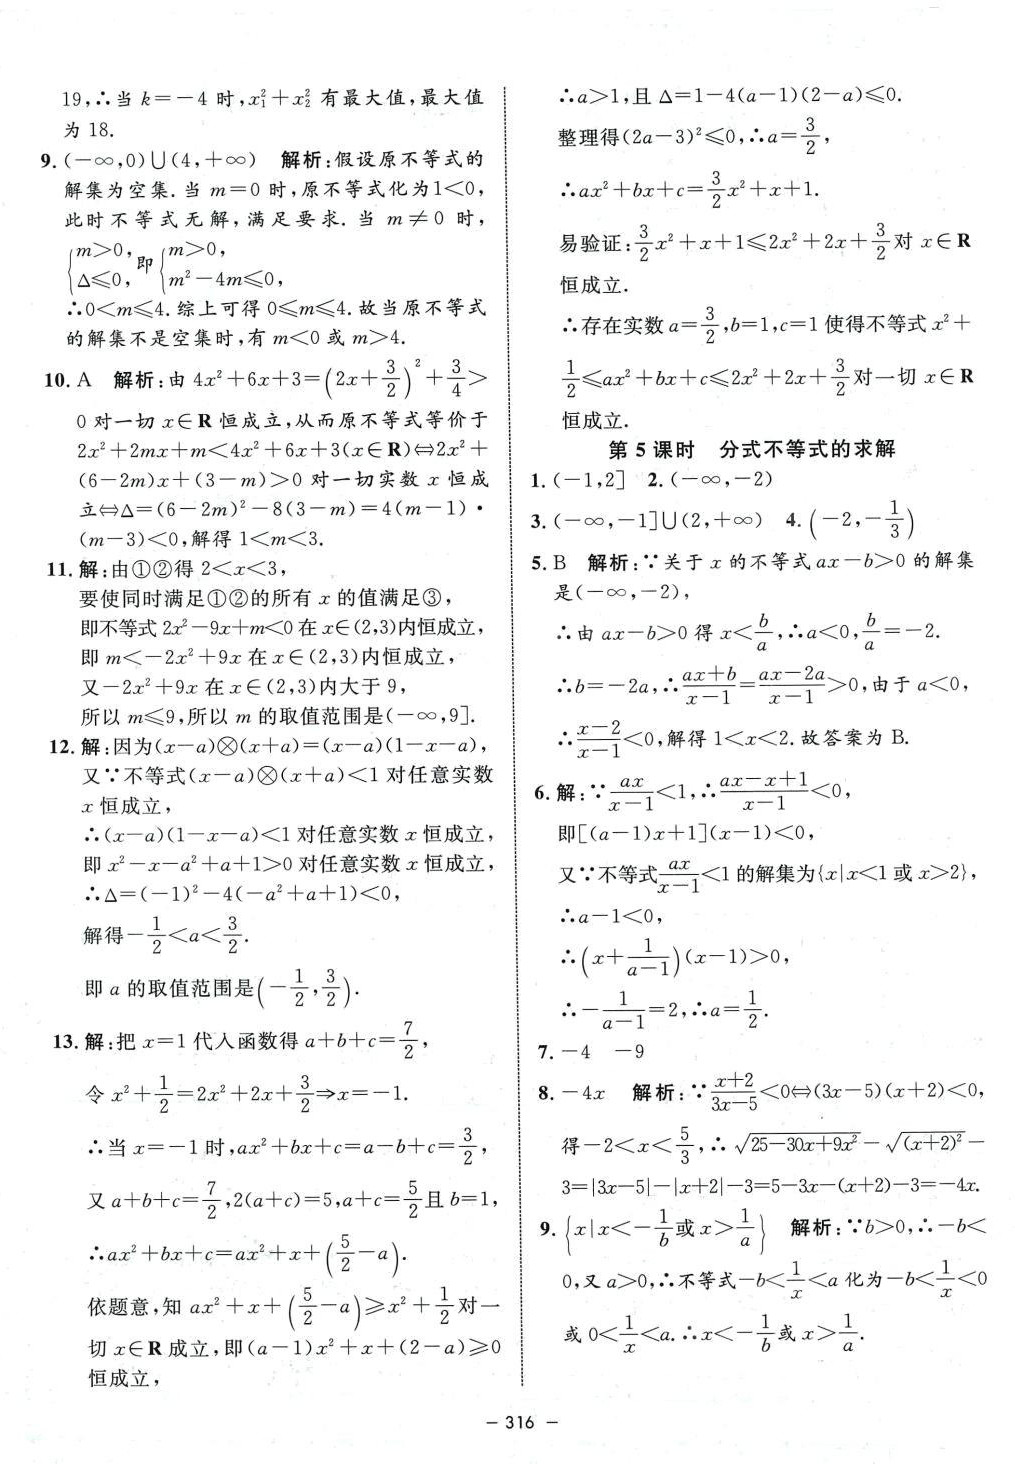 19,∴当 k=－4 时,x₁²+x₂² 有最大值,最大值
为 18.
9. (－∞,0)∪(4,+∞)　解析:假设原不等式的
解集为空集.当 m=0 时,原不等式化为1<0,
此时不等式无解,满足要求.当 m≠0 时,
{m>0, Δ≤0, 即 {m>0, m²－4m≤0,
∴0<m≤4.综上可得 0≤m≤4.故当原不等式
的解集不是空集时,有 m<0 或 m>4.
10. A　解析:由 4x²+6x+3=(2x+3/2)²+3/4>
0 对一切 x∈R 恒成立,从而原不等式等价于
2x²+2mx+m<4x²+6x+3(x∈R)⇔2x²+
(6－2m)x+(3－m)>0 对一切实数 x 恒成
立⇔Δ=(6－2m)²－8(3－m)=4(m－1)·
(m－3)<0,解得 1<m<3.
11. 解:由①②得 2<x<3,
要使同时满足①②的所有 x 的值满足③,
即不等式 2x²－9x+m<0 在 x∈(2,3)内恒成立,
即 m<－2x²+9x 在 x∈(2,3)内恒成立,
又－2x²+9x 在 x∈(2,3)内大于 9,
所以 m≤9,所以 m 的取值范围是(－∞,9].
12. 解:因为(x－a)⊗(x+a)=(x－a)(1－x－a),
又∵不等式(x－a)⊗(x+a)<1 对任意实数
x 恒成立,
∴(x－a)(1－x－a)<1 对任意实数 x 恒成立,
即 x²－x－a²+a+1>0 对任意实数 x 恒成立,
∴Δ=(－1)²－4(－a²+a+1)<0,
解得－1/2<a<3/2.
即 a 的取值范围是(－1/2,3/2).
13. 解:把 x=1 代入函数得 a+b+c=7/2,
令 x²+1/2=2x²+2x+3/2⇒x=－1.
∴当 x=－1 时,ax²+bx+c=a－b+c=3/2,
又 a+b+c=7/2,2(a+c)=5,a+c=5/2且 b=1,
∴ax²+bx+c=ax²+x+(5/2－a).
依题意,知 ax²+x+(5/2－a)≥x²+1/2对一
切 x∈R 成立,即(a－1)x²+x+(2－a)≥0
恒成立,
∴a>1,且 Δ=1－4(a－1)(2－a)≤0.
整理得(2a－3)²≤0,∴a=3/2,
∴ax²+bx+c=3/2x²+x+1.
易验证:3/2x²+x+1≤2x²+2x+3/2对 x∈R
恒成立.
∴存在实数 a=3/2,b=1,c=1 使得不等式 x²+
1/2≤ax²+bx+c≤2x²+2x+3/2对一切 x∈R
恒成立.
第 5 课时　分式不等式的求解
1. (－1,2]　2. (－∞,－2)
3. (－∞,－1]∪(2,+∞)　4. (－2,－1/3)
5. B　解析:∵关于 x 的不等式 ax－b>0 的解集
是(－∞,－2),
∴由 ax－b>0 得 x<b/a,∴a<0,b/a=－2.
∴b=－2a,∴(ax+b)/(x－1)=(ax－2a)/(x－1)>0,由于 a<0,
∴(x－2)/(x－1)<0,解得 1<x<2.故答案为 B.
6. 解:∵ax/(x－1)<1,∴(ax－x+1)/(x－1)<0,
即[(a－1)x+1](x－1)<0,
又∵不等式ax/(x－1)<1的解集为{x|x<1 或 x>2},
∴a－1<0,
∴(x+1/(a－1))(x－1)>0,
∴－1/(a－1)=2,∴a=1/2.
7. －4　－9
8. －4x　解析:∵(x+2)/(3x－5)<0⇔(3x－5)(x+2)<0,
得－2<x<5/3,∴√(25－30x+9x²)－√((x+2)²)－
3=|3x－5|－|x+2|－3=5－3x－(x+2)－3=－4x.
9. {x|x<－1/b或 x>1/a}　解析:∵b>0,∴－b<
0,又 a>0,∴不等式－b<1/x<a 化为－b<1/x<0
或 0<1/x<a.∴x<－1/b或 x>1/a.
－ 316 －